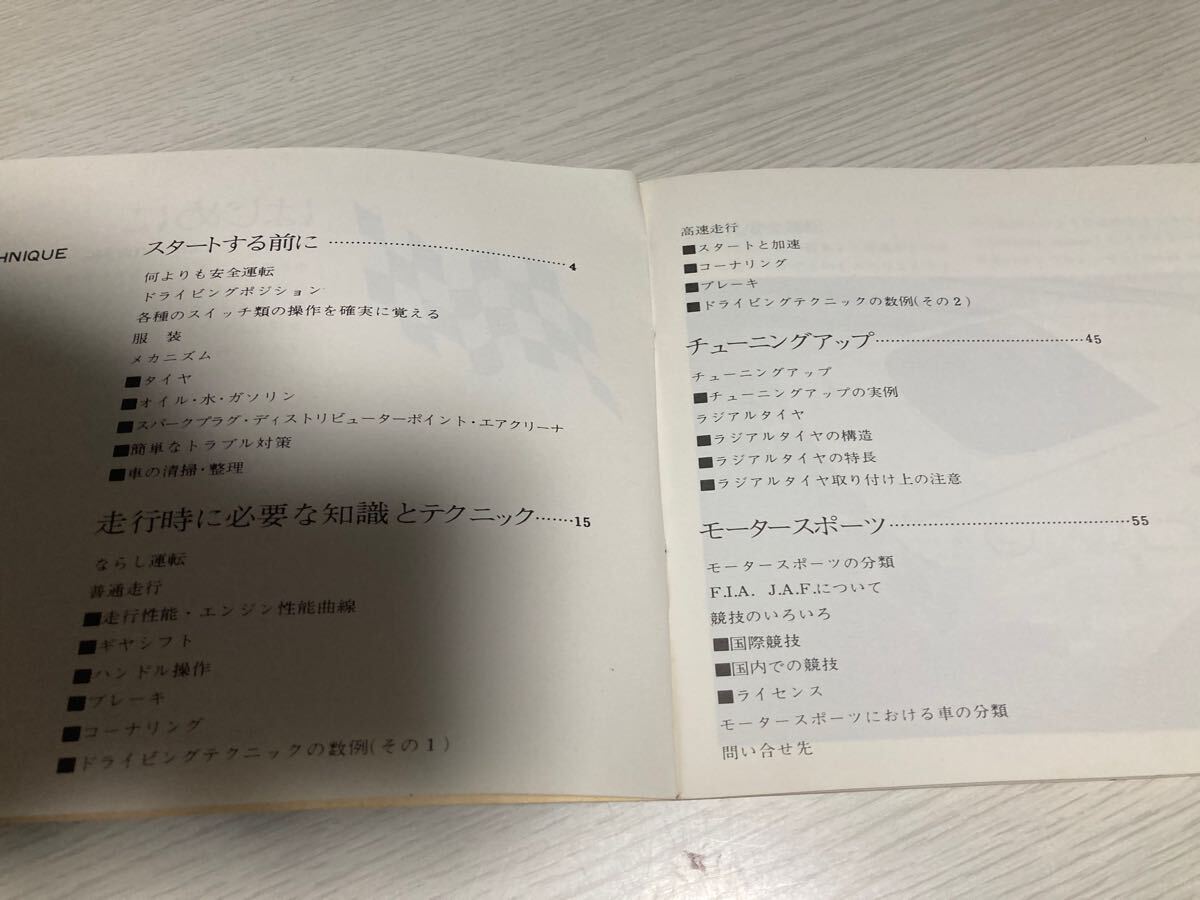 HNIQUE
スタートする前に……………………………4
何よりも安全運転
ドライビングポジション
各種のスイッチ類の操作を確実に覚える
服 装
メカニズム
■タイヤ
■オイル・水・ガソリン
■スパークプラグ・ディストリビューターポイント・エアクリーナ
■簡単なトラブル対策
■車の清掃・整理
走行時に必要な知識とテクニック……15
ならし運転
普通走行
■走行性能・エンジン性能曲線
■ギヤシフト
■ハンドル操作
■ブレーキ
■コーナリング
■ドライビングテクニックの数例(その1)
高速走行
■スタートと加速
■コーナリング
■ブレーキ
■ドライビングテクニックの数例(その2)
チューニングアップ……………………………45
チューニングアップ
■チューニングアップの実例
ラジアルタイヤ
■ラジアルタイヤの構造
■ラジアルタイヤの特長
■ラジアルタイヤ取り付け上の注意
モータースポーツ……………………………55
モータースポーツの分類
F.I.A. J.A.F.について
競技のいろいろ
■国際競技
■国内での競技
■ライセンス
モータースポーツにおける車の分類
問い合せ先